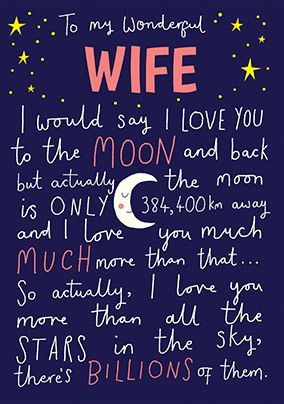 To my Wonderful
WIFE
I would say I LOVE YOU
to the MOON and back
but actually the moon
is ONLY 384,400km away
and I love you much
MUCH more than that...
So actually, I love you
more than all the
STARS in the sky,
there's BILLIONS of them.